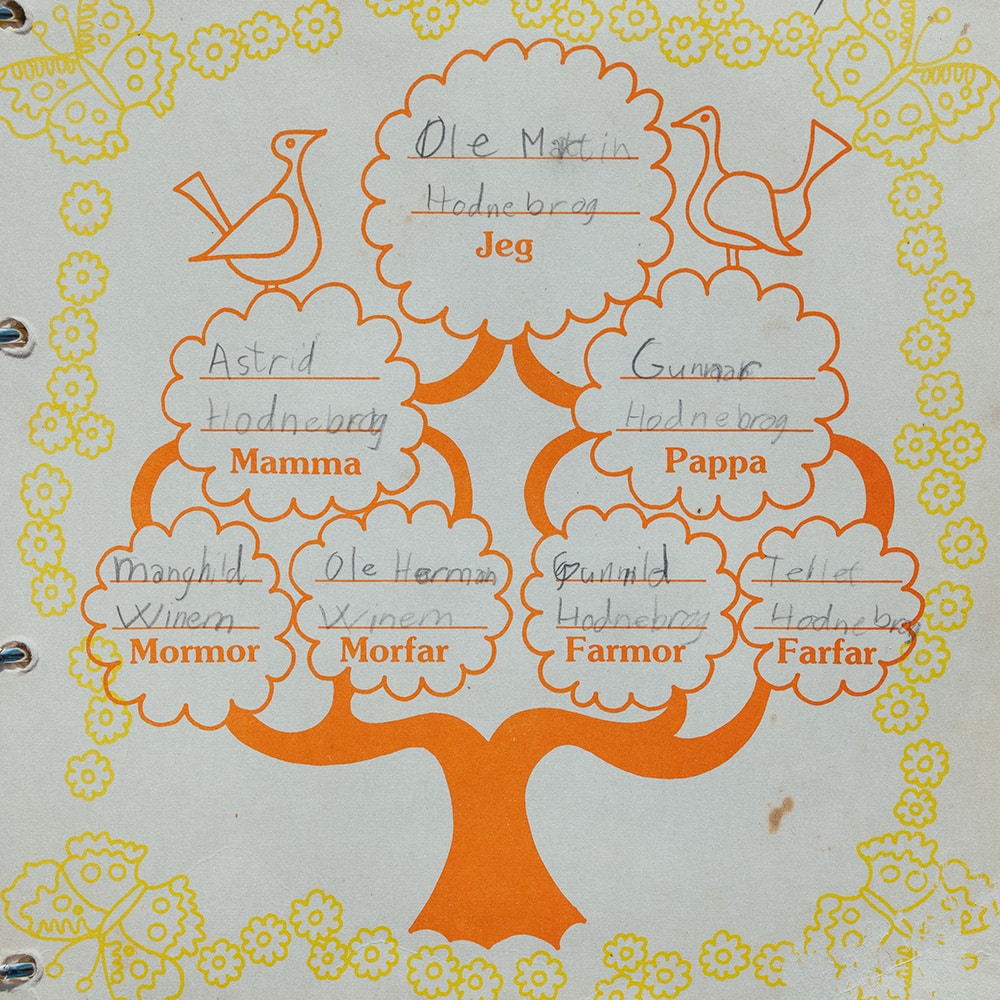 Ole Martin
Hodnebrog
Jeg
Astrid
Hodnebrog
Mamma
Gunnar
Hodnebrog
Pappa
Manghild
Winem
Mormor
Ole Herman
Winem
Morfar
Gunnild
Hodnebrog
Farmor
Tellef
Hodnebrog
Farfar